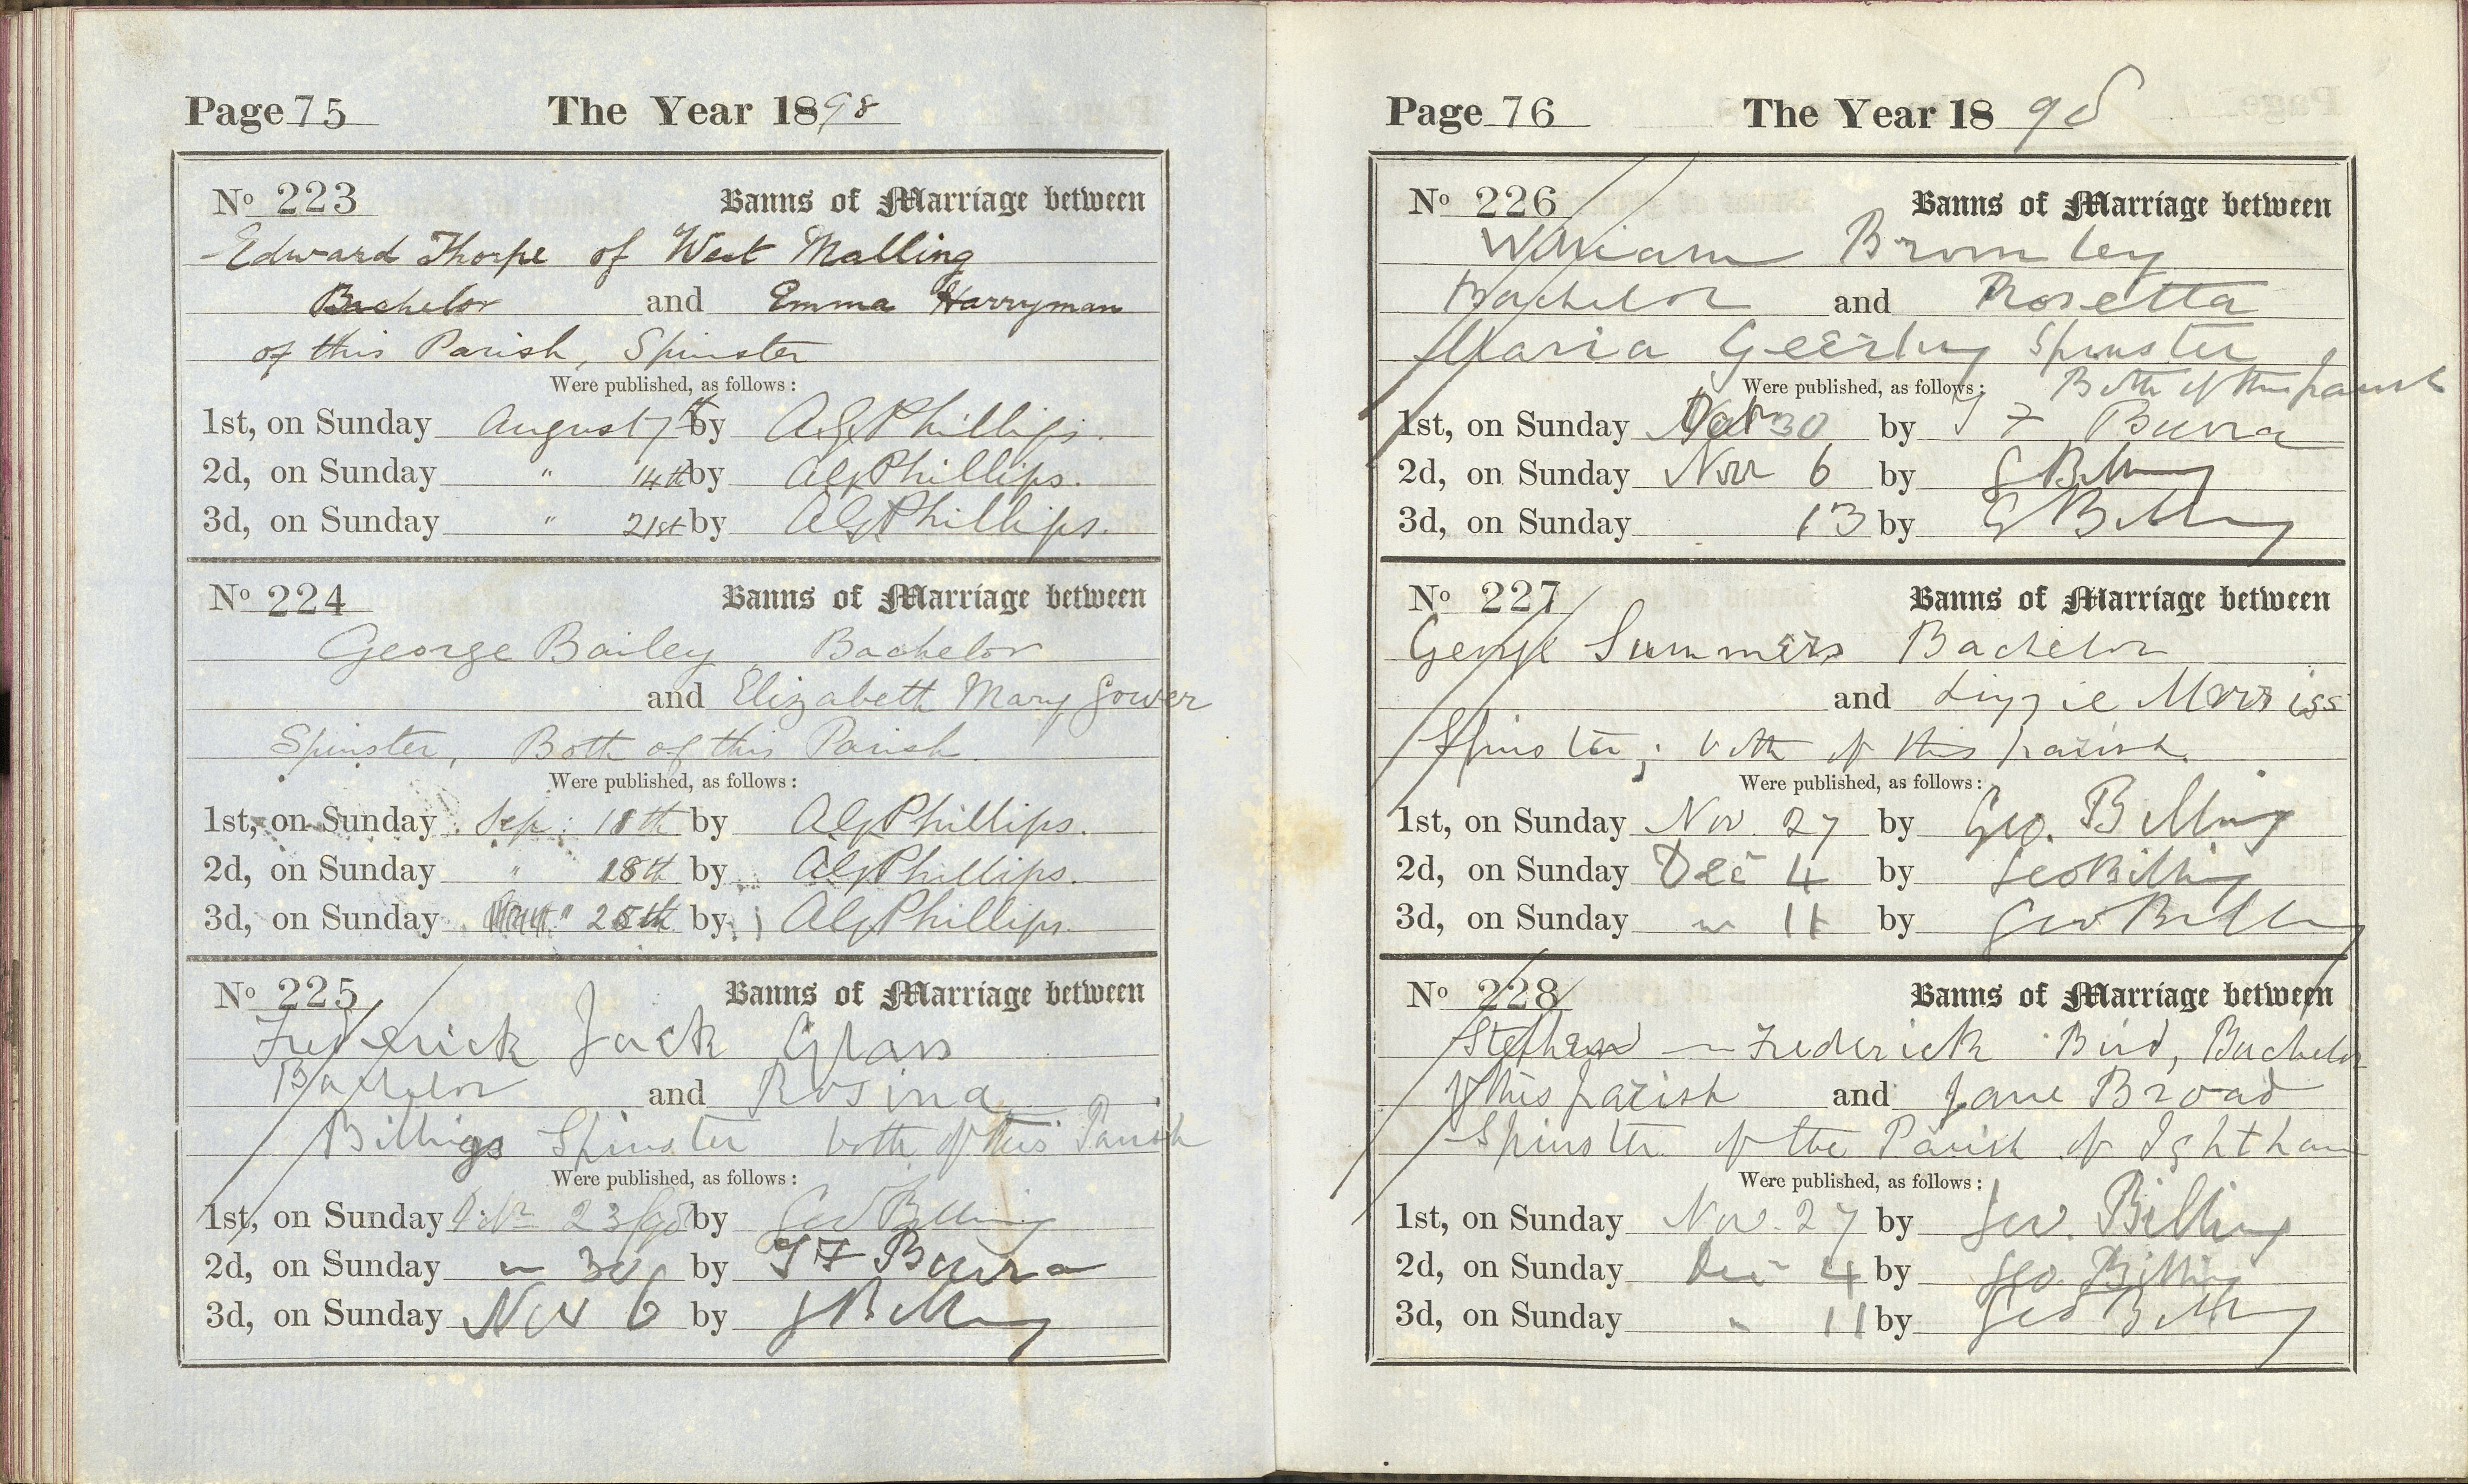 Page 75 The Year 1898
No 223 Banns of Marriage between
Edward Thorpe of West Malling
Bachelor and Emma Harryman
of this Parish, Spinster
Were published, as follows:
1st, on Sunday August 7th by A.G. Phillips.
2d, on Sunday " 14th by A.G. Phillips.
3d, on Sunday " 21st by A.G. Phillips.
No 224 Banns of Marriage between
George Bailey, Bachelor
and Elizabeth Mary Gower
Spinster, Both of this Parish.
Were published, as follows:
1st, on Sunday Sep: by A.G. Phillips.
2d, on Sunday " 18th by A.G. Phillips.
3d, on Sunday " 25th by A.G. Phillips.
No 225 Banns of Marriage between
Frederick Jack Glass
Bachelor and Rosina
Billings Spinster both of this Parish
Were published, as follows:
1st, on Sunday 23/98 by Geo Billing
2d, on Sunday " 30 by T F Burra
3d, on Sunday Nov 6 by G Billing
Page 76 The Year 1898
No 226 Banns of Marriage between
William Bromley
Bachelor and Rosetta
Maria Geering Spinster
Were published, as follows: Both of this parish
1st, on Sunday 30 by T F Burra
2d, on Sunday Nov 6 by G Billing
3d, on Sunday 13 by G Billing
No 227 Banns of Marriage between
George Summers Bachelor
and Lizzie Morriss
Spinster; both of this parish.
Were published, as follows:
1st, on Sunday Nov. 27 by Geo. Billing
2d, on Sunday Dec 4 by Geo Billing
3d, on Sunday " 11 by Geo Billing
No 228 Banns of Marriage between
Stephen Frederick Bird, Bachelor
of this parish and Jane Broad
Spinster of the Parish of Ightham
Were published, as follows:
1st, on Sunday Nov. 27 by Geo. Billing
2d, on Sunday Dec 4 by Geo. Billing
3d, on Sunday " 11 by Geo Billing